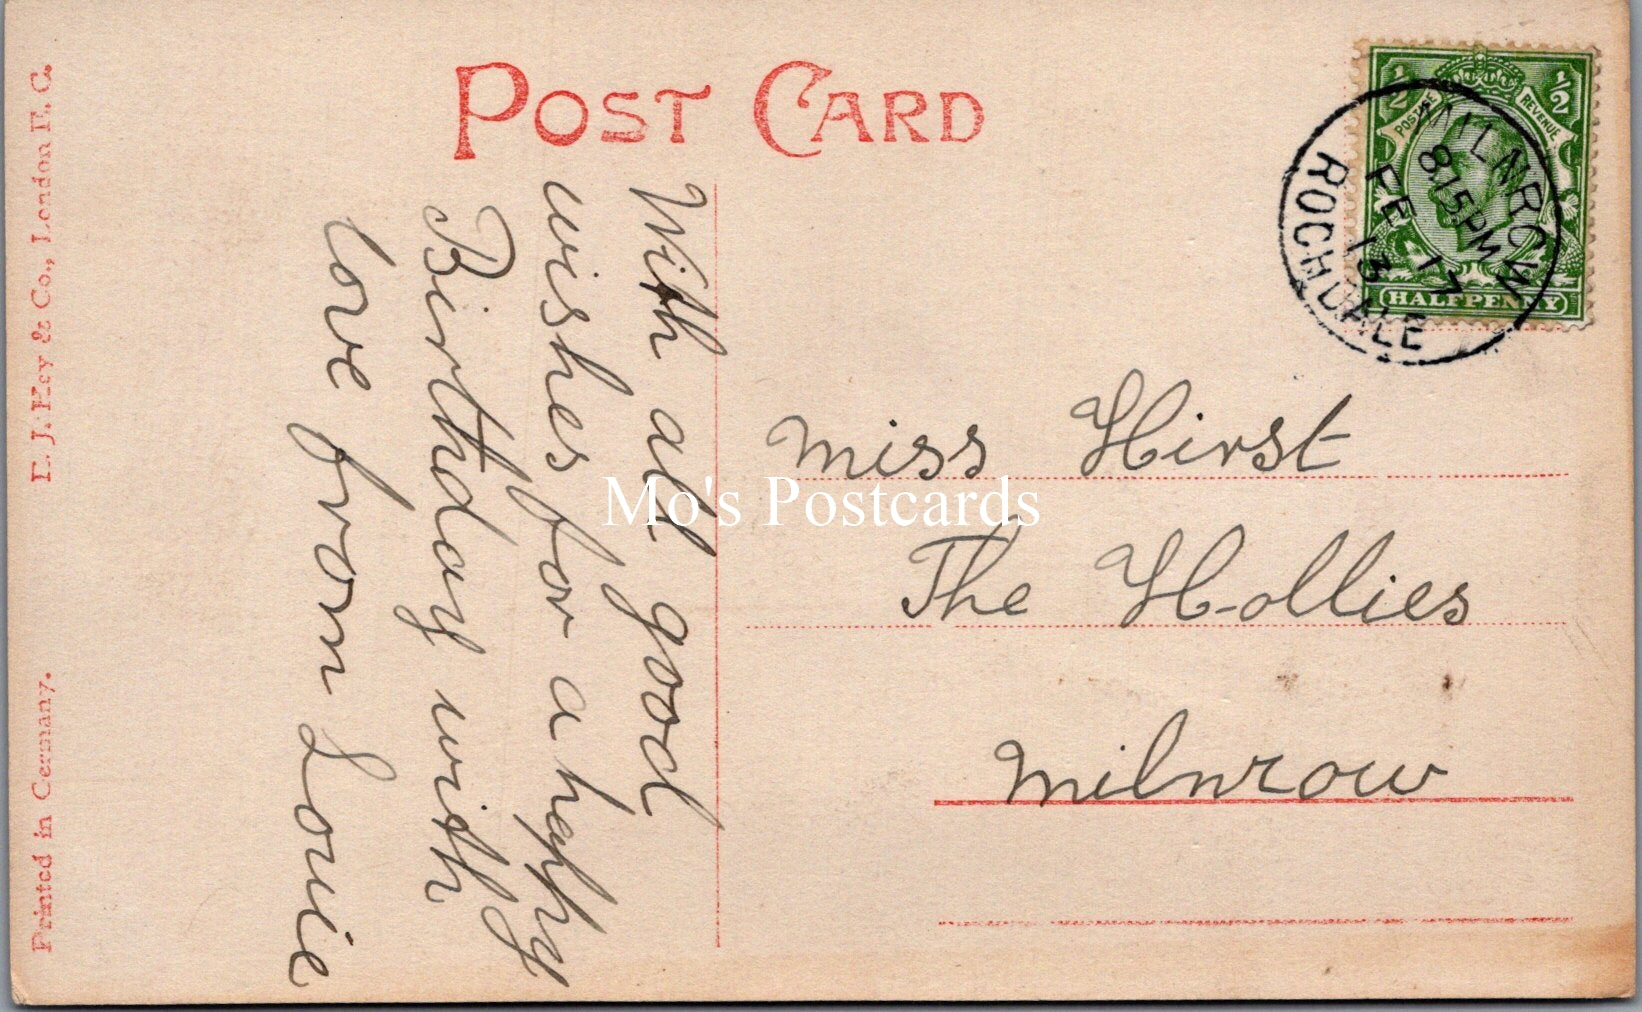 POST CARD
With all good
wishes for a happy
Birthday with
love from Louie
Miss Hirst
The Hollies
Milnrow
½ ½
POSTAGE REVENUE
HALFPENNY
MILNROW
8.15PM
FE 17
13
ROCHDALE
Mo's Postcards
Printed in Germany. E. J. Hey & Co., London E. C.